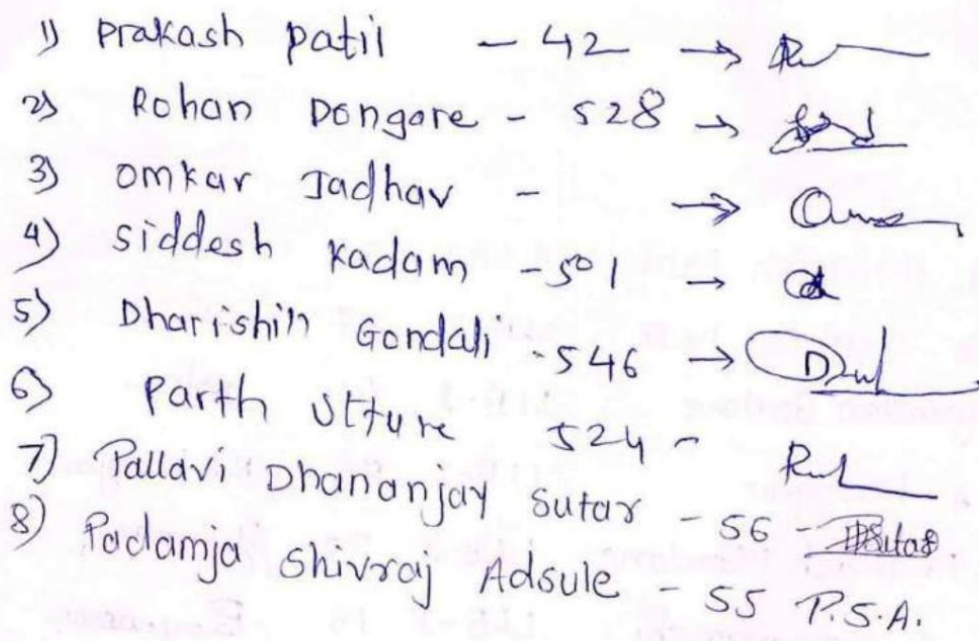 1) Prakash Patil - 42 →
2) Rohan Dongare - 528 →
3) Omkar Jadhav - →
4) Siddesh Kadam - 501 →
5) Gondali - 546 →
6) Parth Utture 524 -
7) Pallavi Dhananjay Sutar - 56 - PDSutar.
8) Padamja Shivraj Adsule - 55 P.S.A.